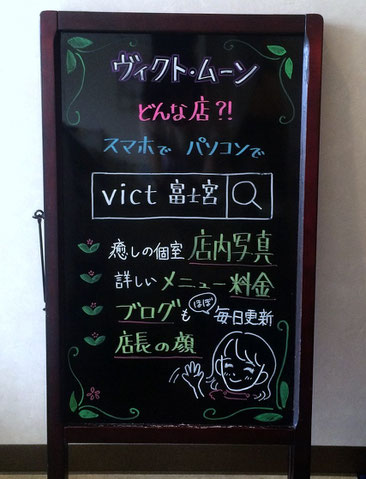 ヴィクト・ムーン
どんな店?!
スマホで パソコンで
vict 富士宮
癒しの個室 店内写真
詳しいメニュー料金
ブログも ほぼ 毎日更新
店長の顔